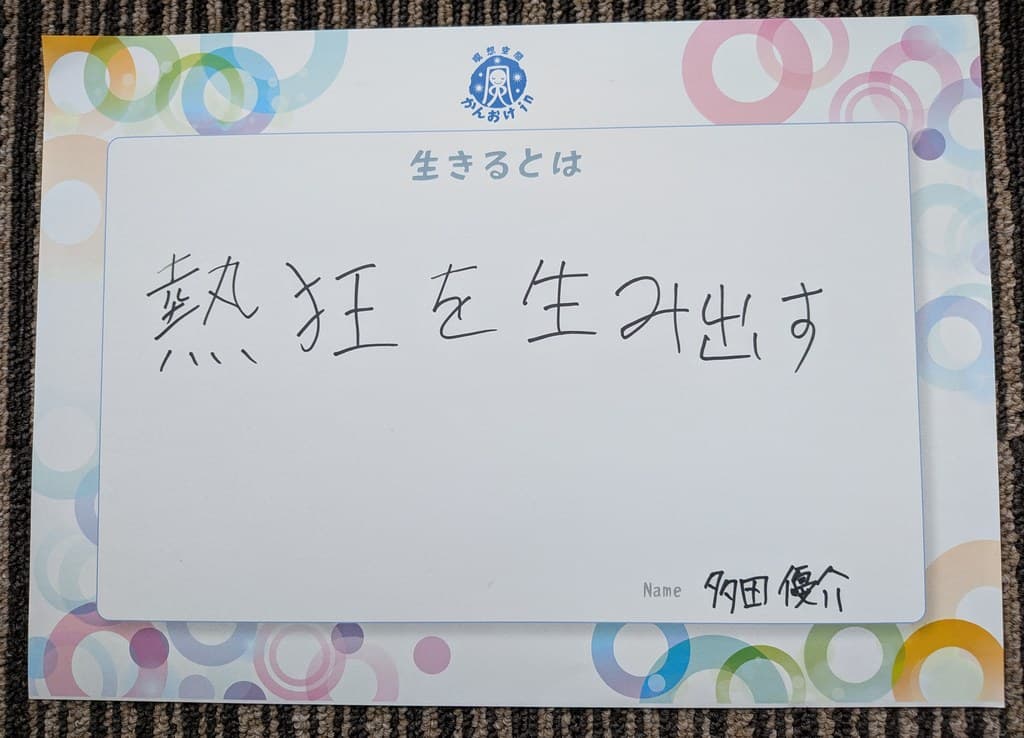 瞑想空間
かんおけ in
生きるとは
熱狂を生み出す
Name 多田優介